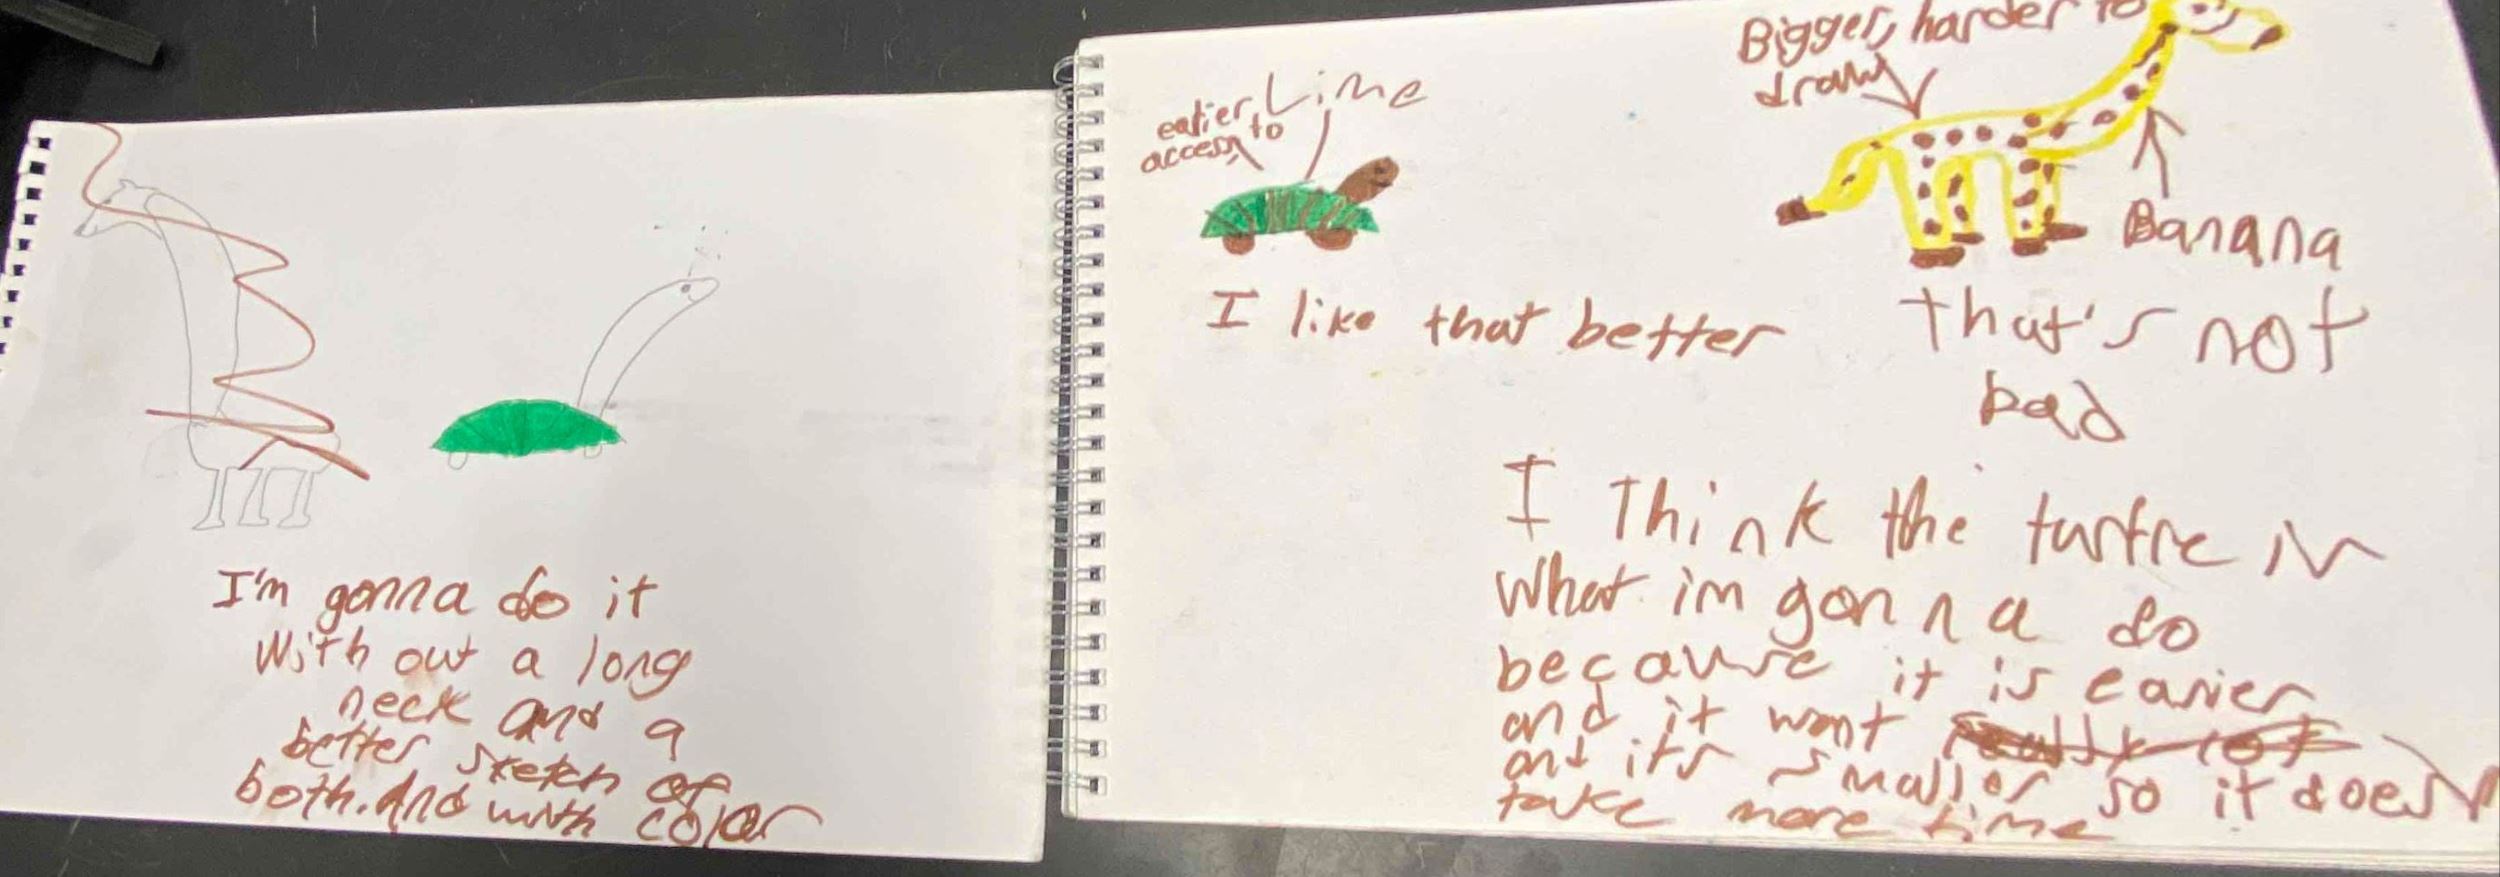 I'm gonna do it
with out a long
neck and a
better sketch of
both. And with color
easier to
access
Lime
Bigger, harder to
draw
Banana
I like that better
that's not
bad
I Think the turtle is
what im gonna do
because it is easier
and it wont
and its smaller so it does
take more time